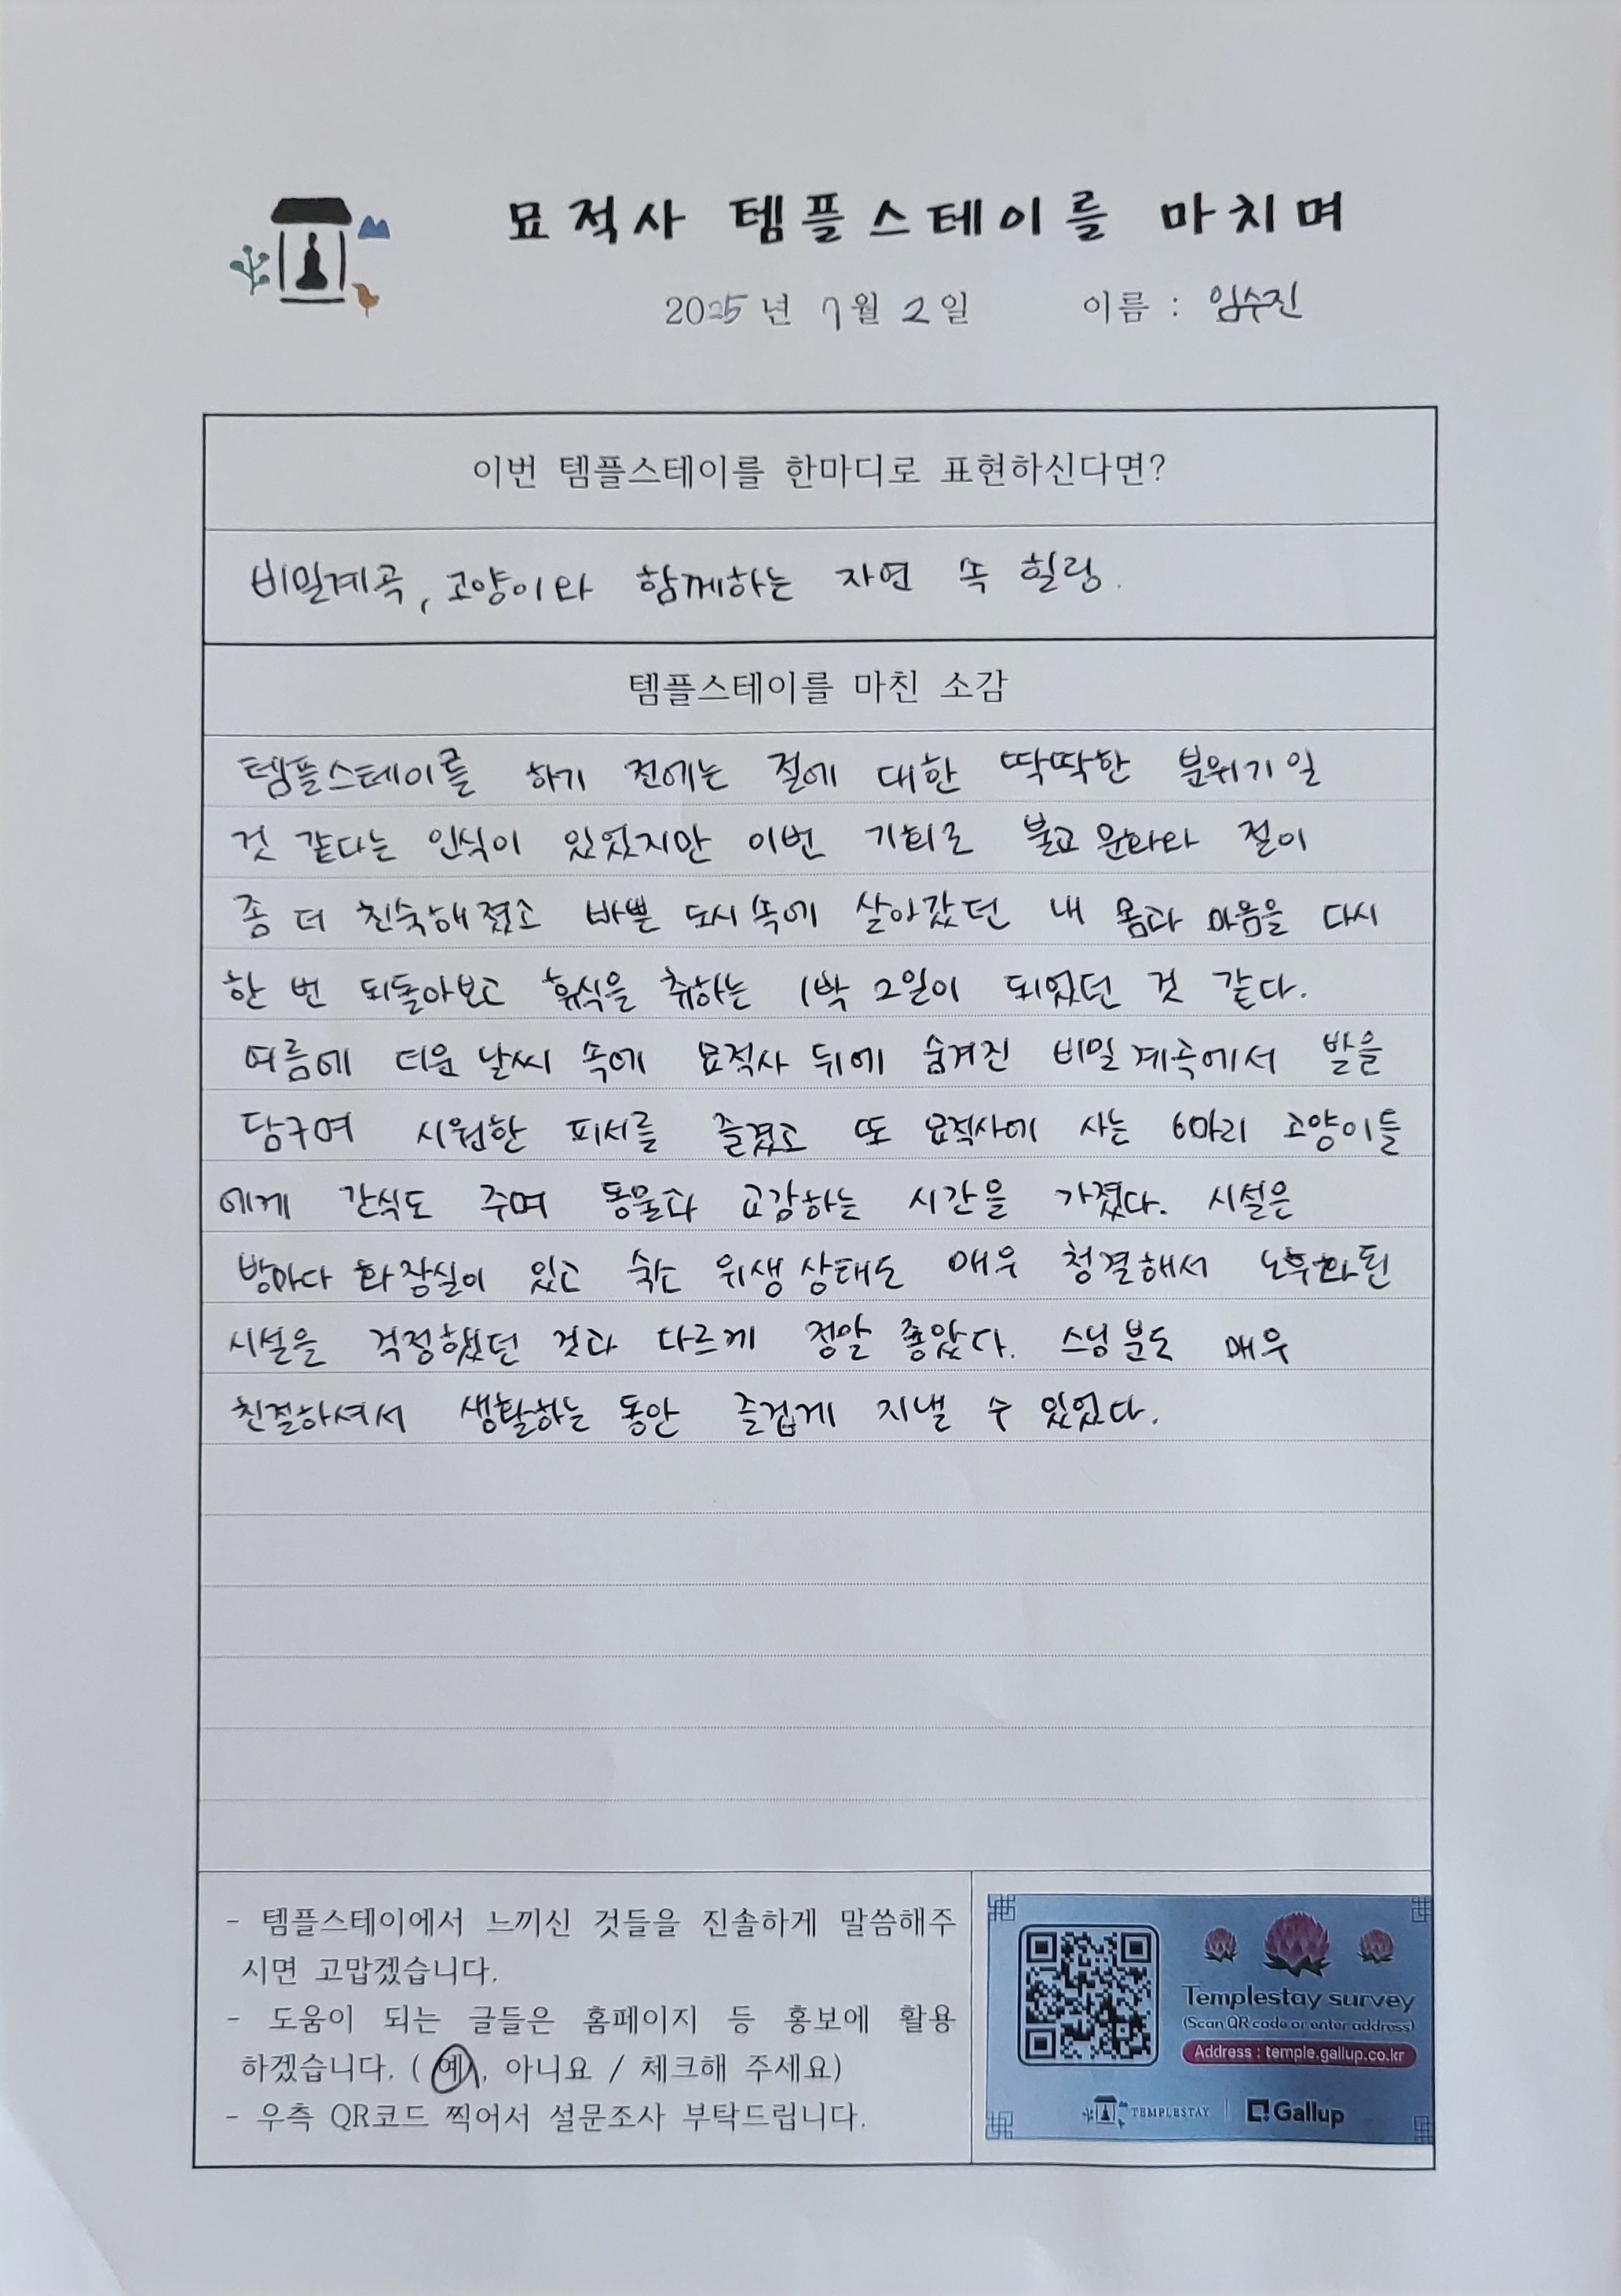 묘적사 템플스테이를 마치며
2025년 7월 2일 이름 : 임수진
이번 템플스테이를 한마디로 표현하신다면?
비밀계곡, 고양이와 함께하는 자연 속 힐링.
템플스테이를 마친 소감
템플스테이를 하기 전에는 절에 대한 딱딱한 분위기일
것 같다는 인식이 있었지만 이번 기회로 불교 문화와 절이
좀 더 친숙해졌고 바쁜 도시 속에 살아갔던 내 몸과 마음을 다시
한 번 되돌아보고 휴식을 취하는 1박 2일이 되었던 것 같다.
여름에 더운 날씨 속에 묘적사 뒤에 숨겨진 비밀계곡에서 발을
담구며 시원한 피서를 즐겼고 또 묘적사에 사는 6마리 고양이들
에게 간식도 주며 동물과 교감하는 시간을 가졌다. 시설은
방마다 화장실이 있고 숙소 위생상태도 매우 청결해서 노후화된
시설을 걱정했던 것과 다르게 정말 좋았다. 스님분도 매우
친절하셔서 생활하는 동안 즐겁게 지낼 수 있었다.
- 템플스테이에서 느끼신 것들을 진솔하게 말씀해주
시면 고맙겠습니다.
- 도움이 되는 글들은 홈페이지 등 홍보에 활용
하겠습니다. ( 예, 아니요 / 체크해 주세요)
- 우측 QR코드 찍어서 설문조사 부탁드립니다.
Templestay survey
(Scan QR code or enter address)
Address : temple.gallup.co.kr
TEMPLESTAY Gallup